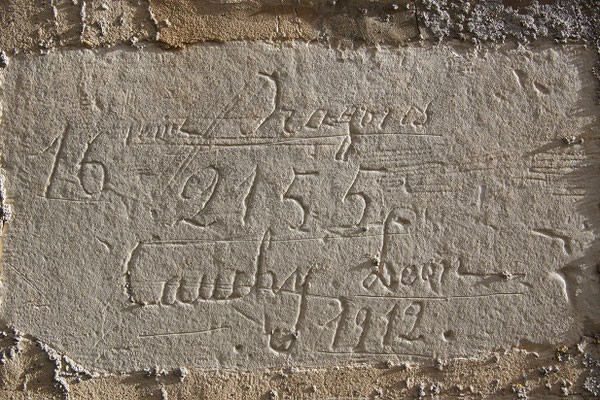 16 eme Dragons
2155
Cauchy
1912.